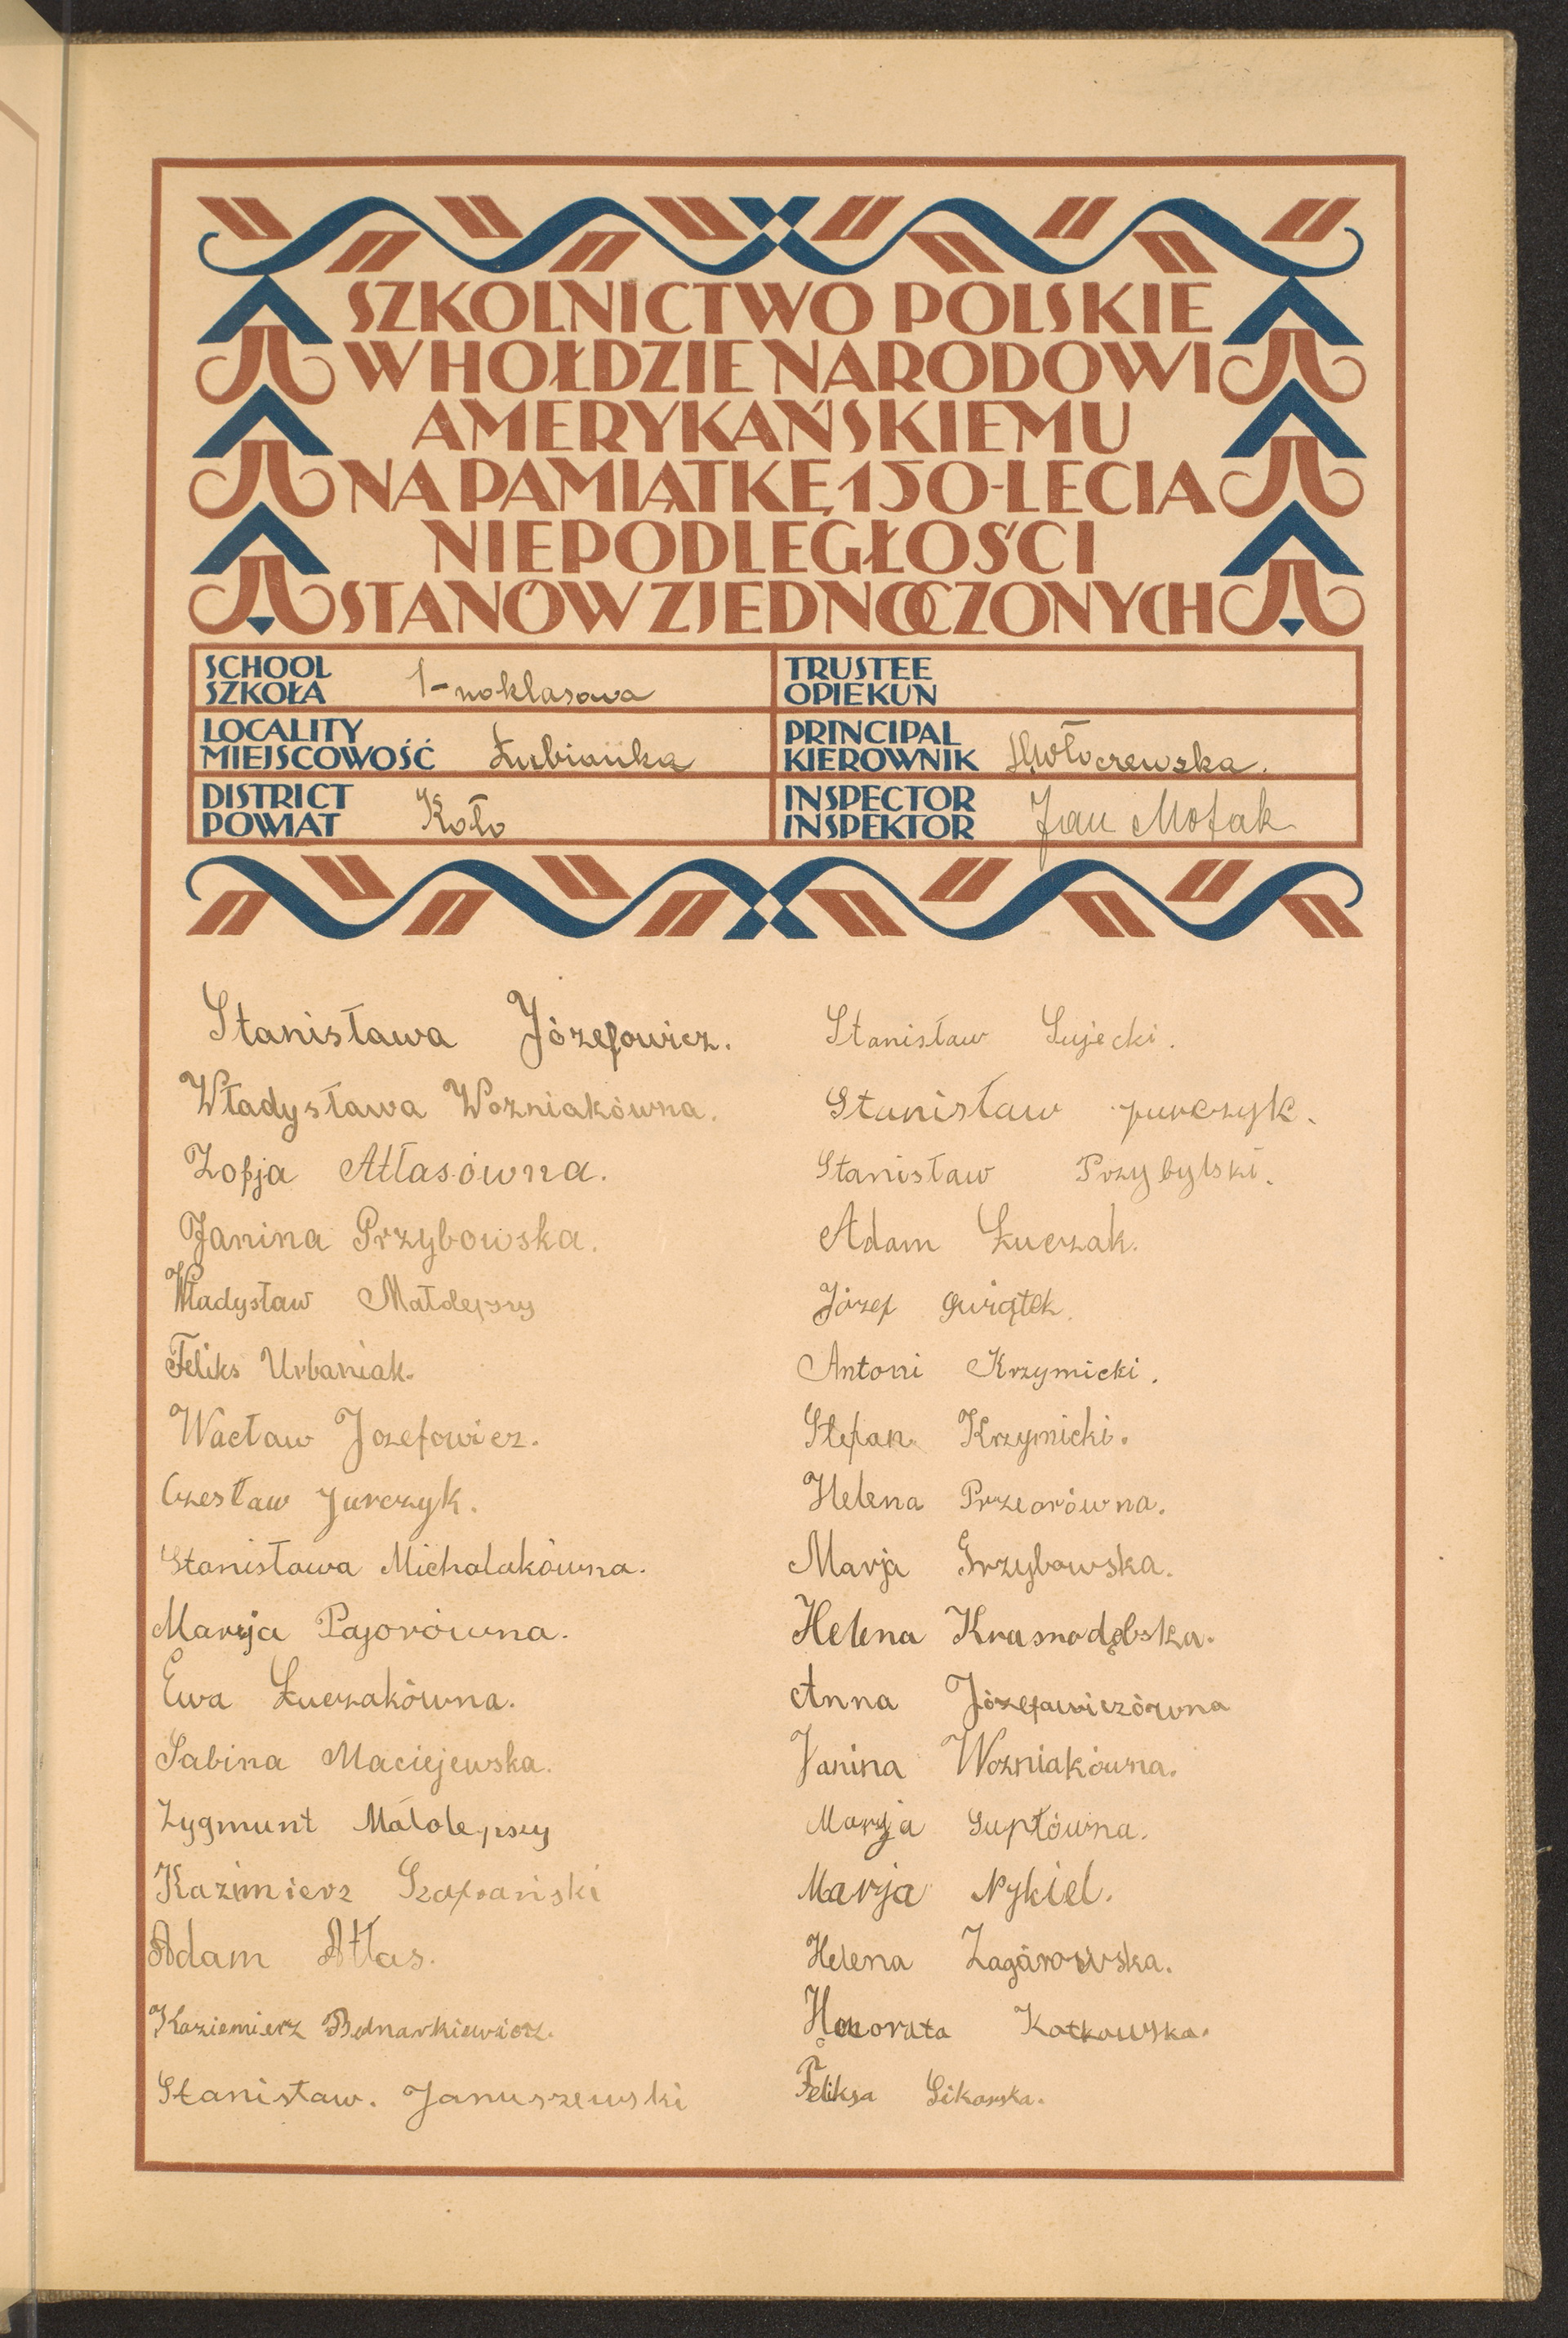 SZKOLNICTWO POLSKIE
W HOŁDZIE NARODOWI
AMERYKAŃSKIEMU
NA PAMIĄTKĘ 150-LECIA
NIEPODLEGŁOŚCI
STANÓW ZJEDNOCZONYCH
SCHOOL
SZKOŁA 1-noklasowa
TRUSTEE
OPIEKUN
LOCALITY
MIEJSCOWOŚĆ Łubianka
PRINCIPAL
KIEROWNIK
DISTRICT
POWIAT Koło
INSPECTOR
INSPEKTOR Jan Motak
Stanisława Józefowicz.
Władysława Wozniakówna.
Zofja Atłasówna.
Janina Przybowska.
Władysław Małolepszy
Feliks Urbaniak.
Wacław Jozefowicz.
Czesław Jurczyk.
Stanisława Michalakówna.
Marja Pajorówna.
Ewa Łuczakówna.
Sabina Maciejewska.
Zygmunt Małolepszy
Kazimierz Szafrański
Adam Atłas.
Kaziemierz Bednarkiewicz.
Stanisław. Januszewski
Stanisław Łujecki.
Stanisław Jurczyk.
Stanisław Przybylski.
Adam Łuczak.
Józef Gwiątek.
Antoni Krzymicki.
Stefan Krzymicki.
Helena Przeorówna.
Marja Grzybowska.
Helena Krasnodębska.
Anna Józefawiczówna
Janina Wozniakówna.
Marja Supłówna.
Marja Nykiel.
Helena Zagórowska.
Honorata Kotkowska.
Feliksa Sikorska.